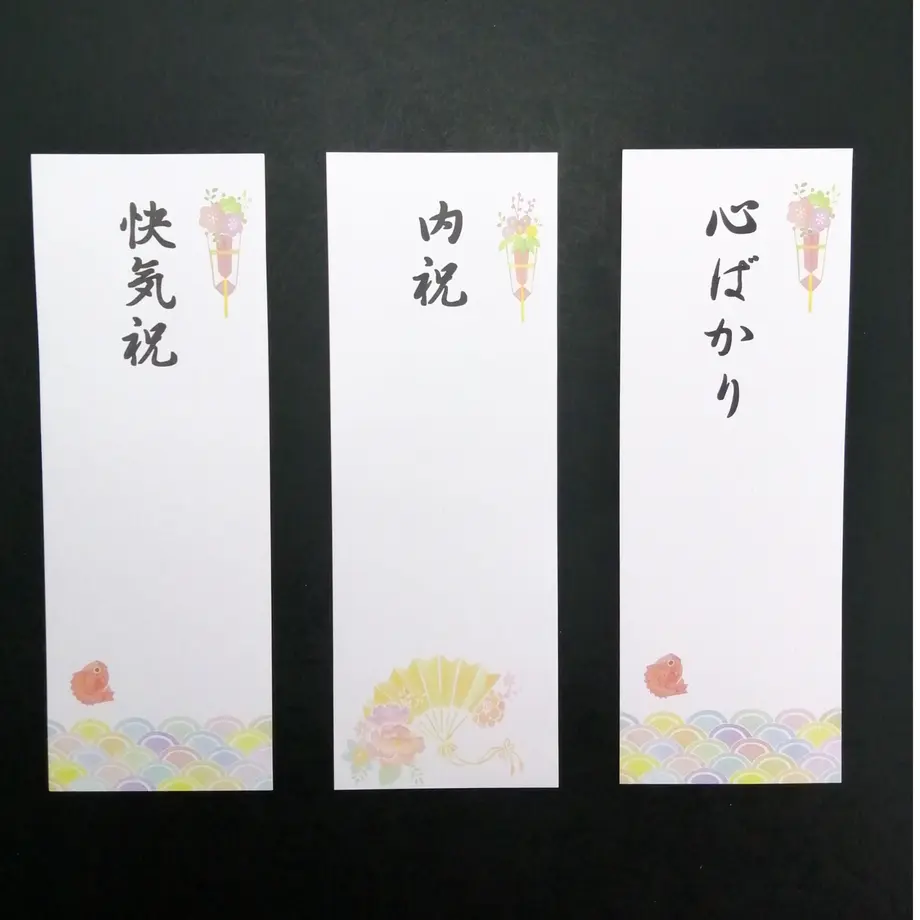 快気祝
内祝
心ばかり